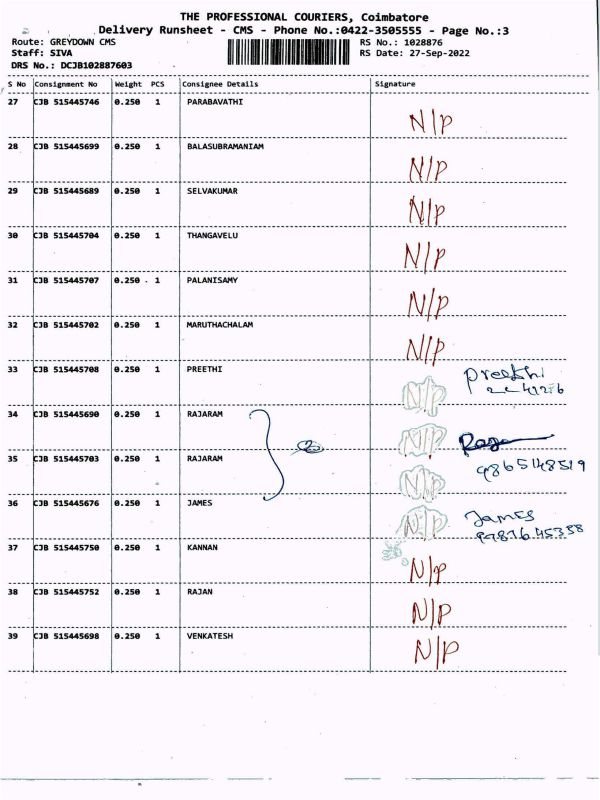 THE PROFESSIONAL COURIERS, Coimbatore
Delivery Runsheet - CMS - Phone No.:0422-3505555 - Page No.:3
Route: GREYDOWN CMS RS No.: 1028876
Staff: SIVA RS Date: 27-Sep-2022
DRS No.: DCJB102887603
S No Consignment No Weight PCS Consignee Details Signature
27 CJB 515445746 0.250 1 PARABAVATHI
N/P
28 CJB 515445699 0.250 1 BALASUBRAMANIAM
N/P
29 CJB 515445689 0.250 1 SELVAKUMAR
N/P
30 CJB 515445704 0.250 1 THANGAVELU
N/P
31 CJB 515445707 0.250 1 PALANISAMY
N/P
32 CJB 515445702 0.250 1 MARUTHACHALAM
N/P
33 CJB 515445708 0.250 1 PREETHI
N/P Preethi
34 CJB 515445690 0.250 1 RAJARAM
N/P
35 CJB 515445703 0.250 1 RAJARAM
9865148519
N/P
36 CJB 515445676 0.250 1 JAMES
N/P James
37 CJB 515445750 0.250 1 KANNAN
N/P
38 CJB 515445752 0.250 1 RAJAN
N/P
39 CJB 515445698 0.250 1 VENKATESH
N/P